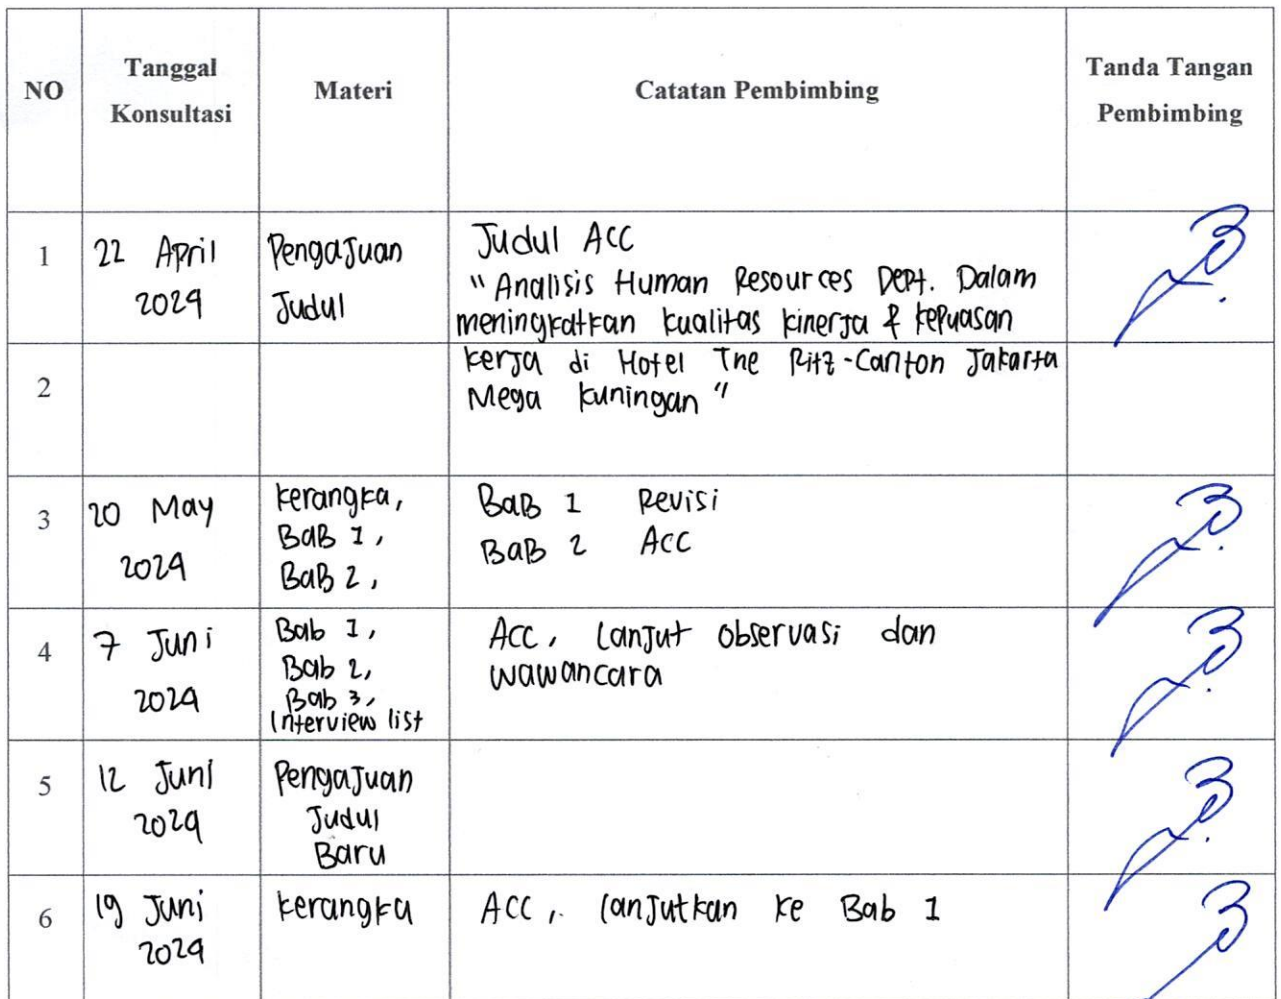 NO
Tanggal
Konsultasi
Materi
Catatan Pembimbing
Tanda Tangan
Pembimbing
1
22 April
2024
Pengajuan
Judul
Judul ACC
"Analisis Human Resources Dept. Dalam
meningkatkan kualitas kinerja & kepuasan
kerja di Hotel The Ritz-Carlton Jakarta
Mega kuningan"
2
3
20 May
2024
kerangka,
BaB 1,
BaB 2,
BaB 1 Revisi
BaB 2 ACC
4
7 Juni
2024
Bab 1,
Bab 2,
Bab 3,
Interview list
Acc, Lanjut observasi dan
wawancara
5
12 Juni
2024
Pengajuan
Judul
Baru
6
19 Juni
2024
kerangka
ACC, lanjutkan ke Bab 1